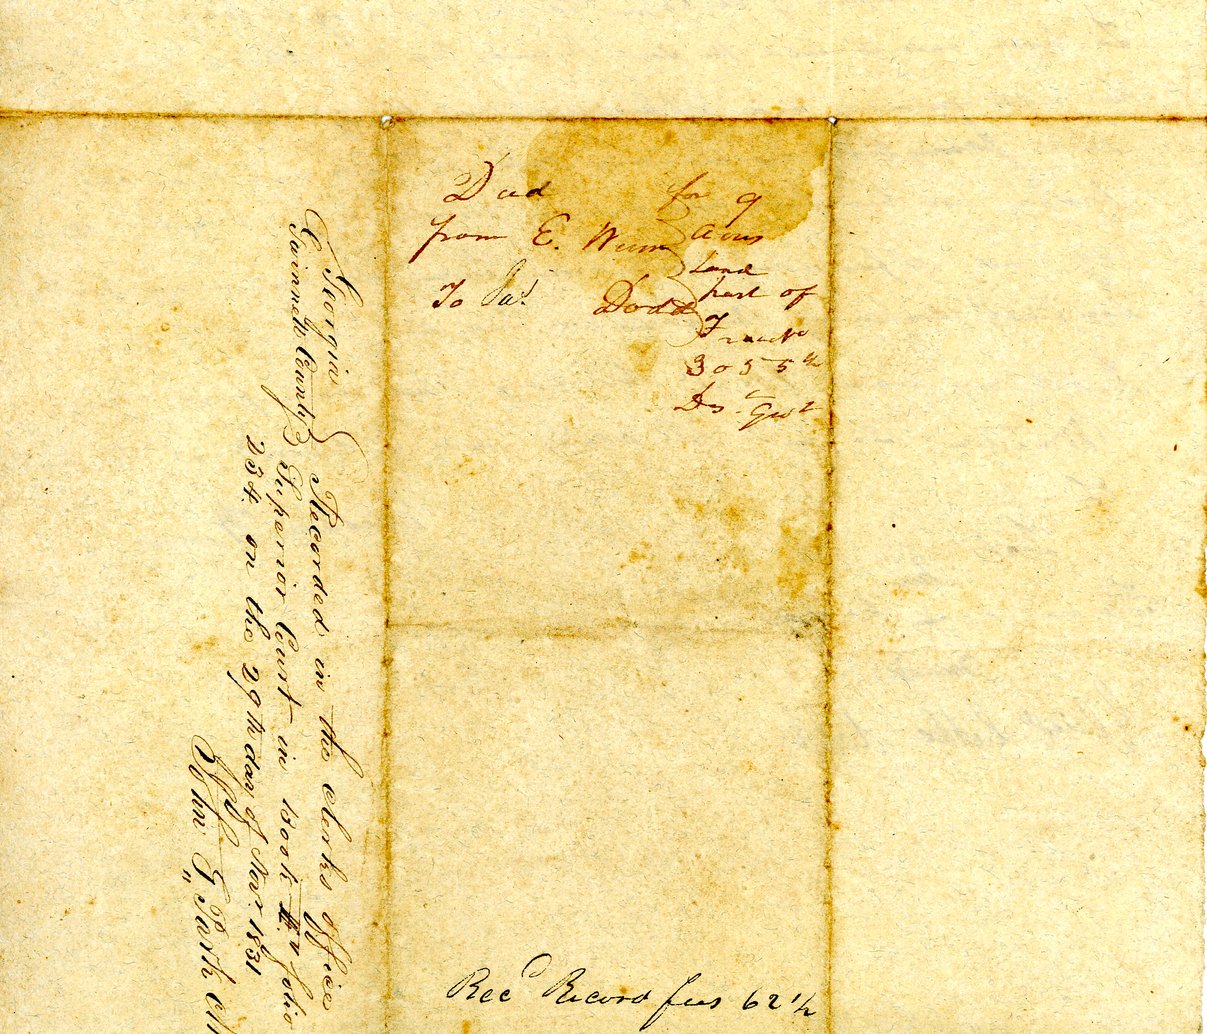 Deed
from E. Winn
To Jas. Dodd
for 9
Acres
Land
part of
Tract No
305 5th
Dis. Gwt
Georgia
Gwinnett County
Recorded in the clerks office
Superior Court in Book folio
234. on the 29th day of Novr. 1831
John G Park
Recd Record fees 62 1/2